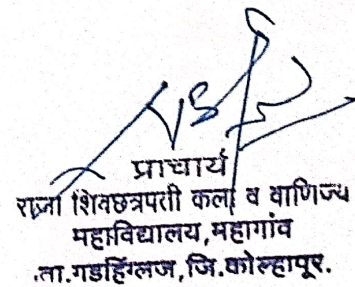 प्राचार्य
राजा शिवछत्रपती कला व वाणिज्य
महाविद्यालय,महागांव
.ता.गडहिंग्लज,जि.कोल्हापूर.